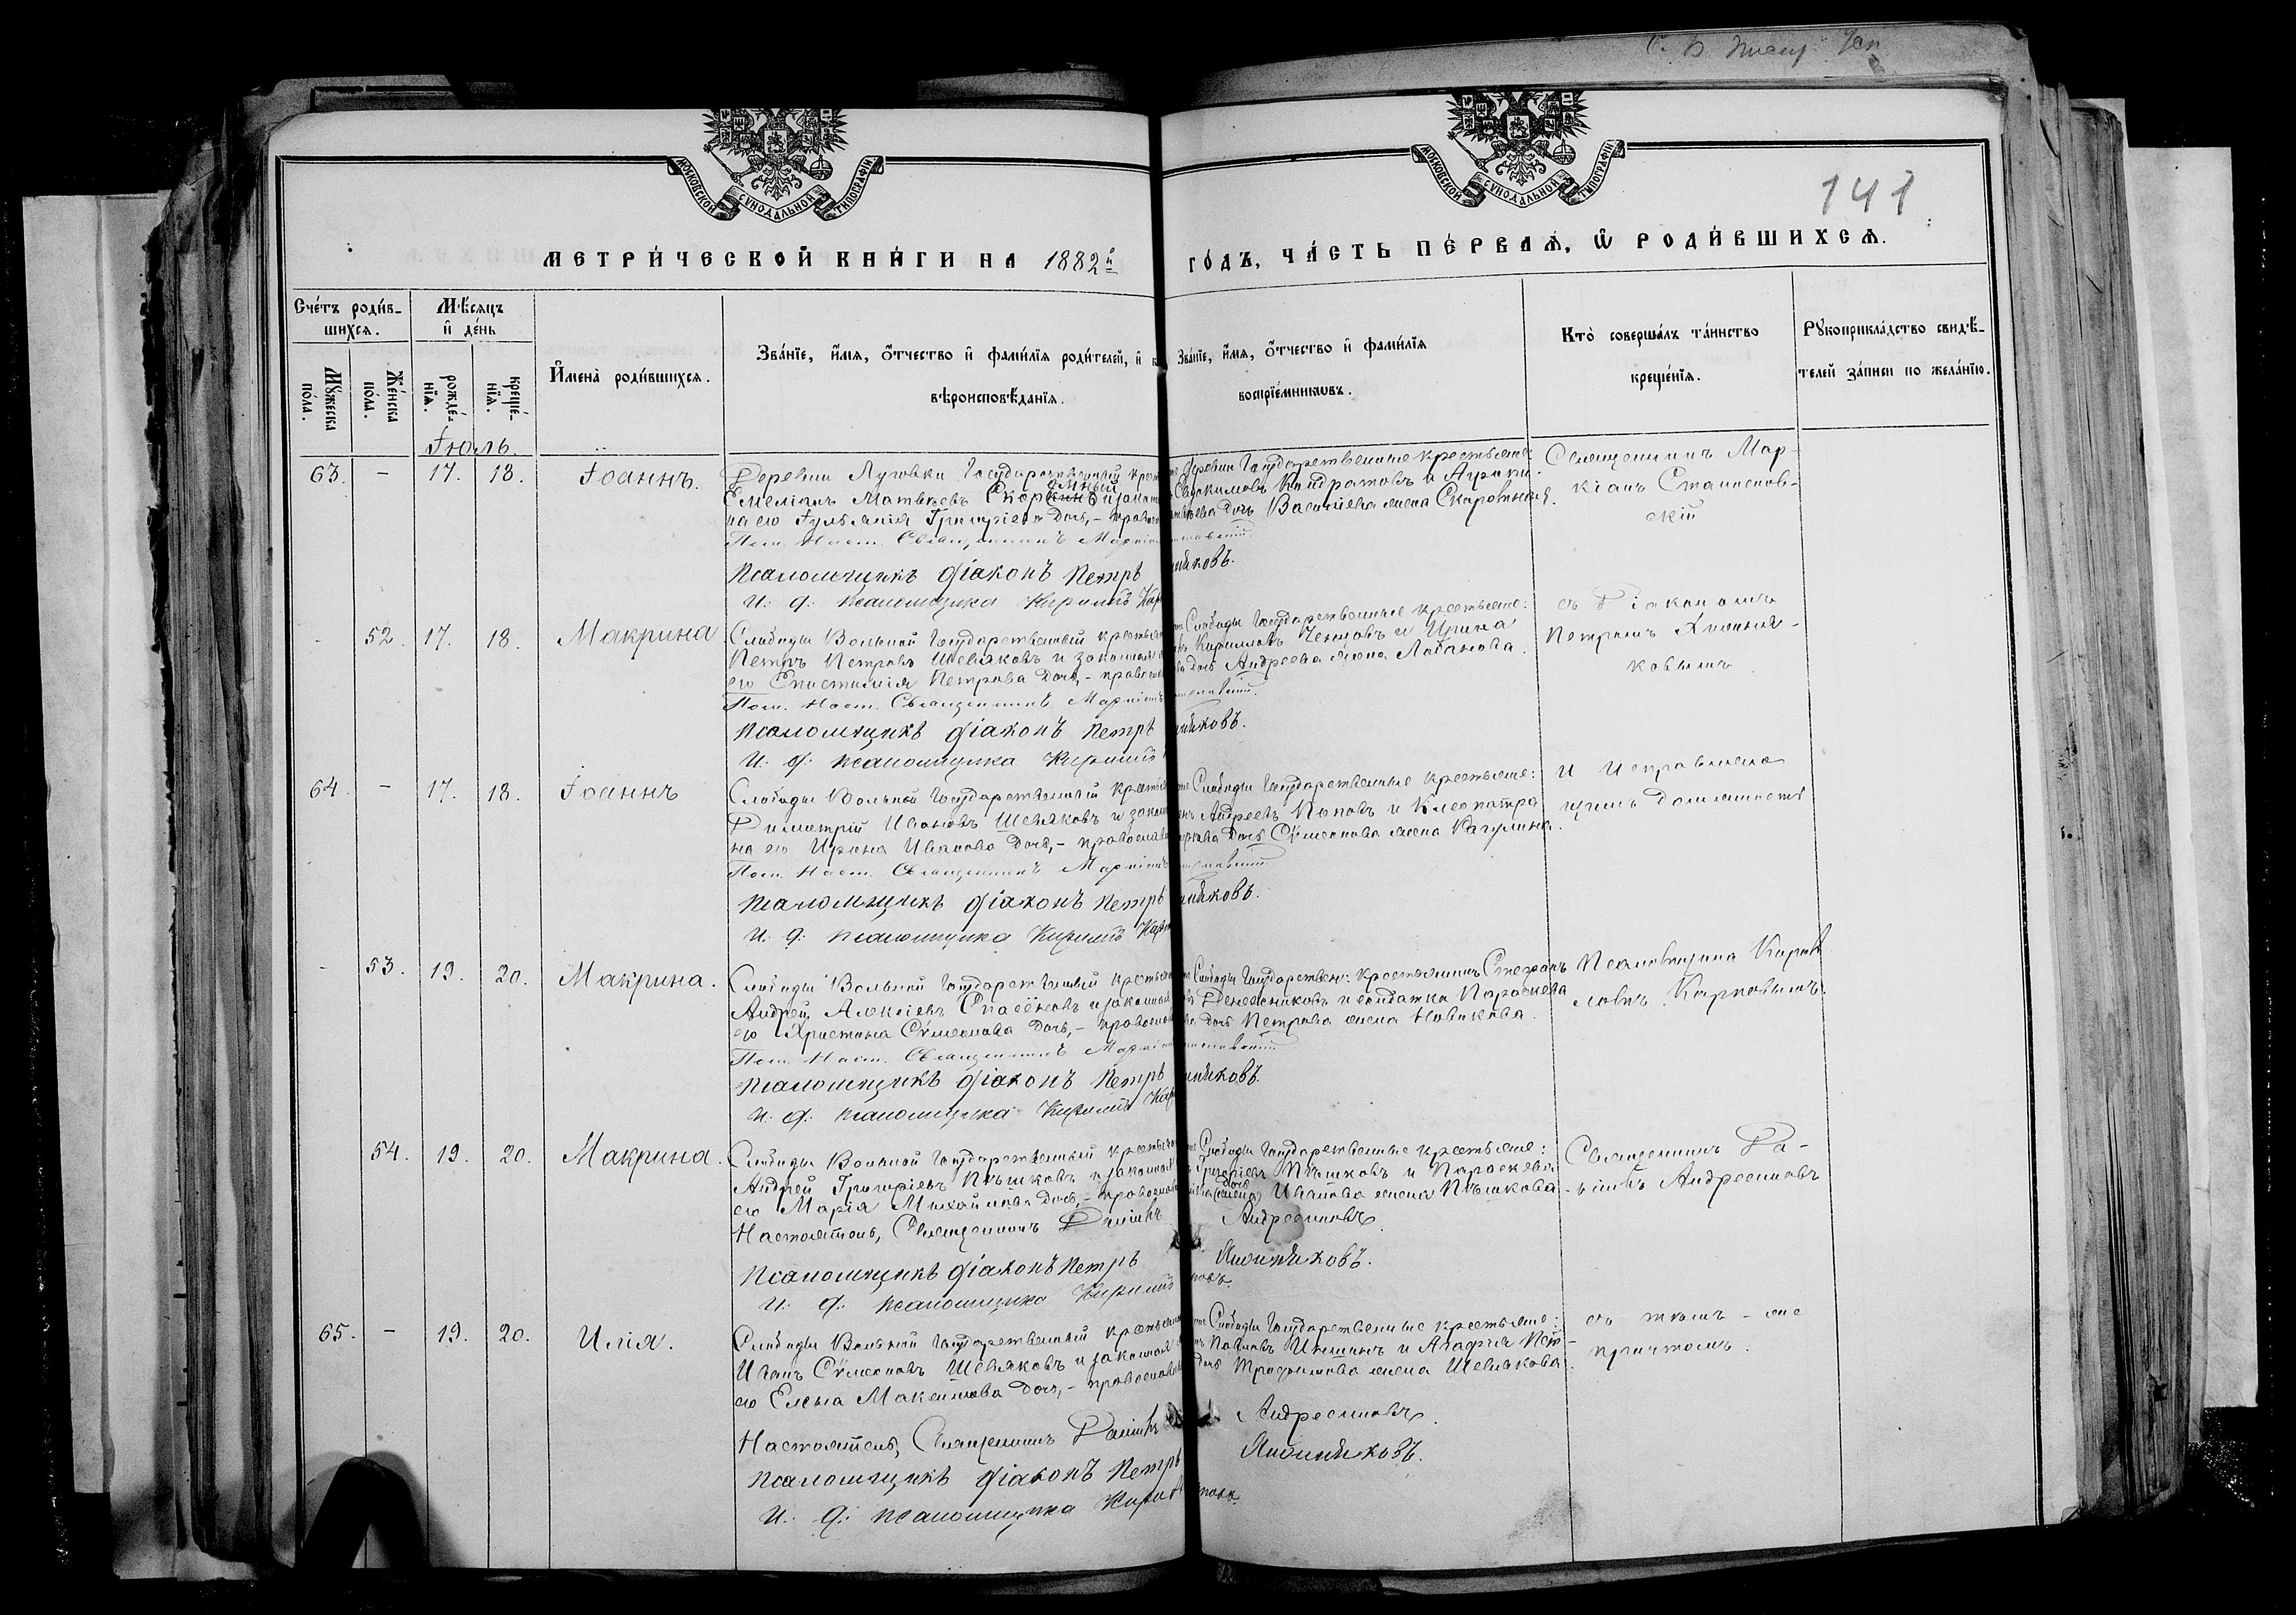 С. В.
МОСКОВСКОЙ СѴНОДАЛЬНОЙ ТИПОГРАФІИ
МОСКОВСКОЙ СѴНОДАЛЬНОЙ ТИПОГРАФІИ
141
МЕТРИ́ЧЕСКОЙ КНИ́ГИ НА 1882й
ГО́ДЪ, ЧА́СТЬ ПЕ́РВАѦ, Ѡ҆ РОДИ́ВШИХСѦ.
Сче́тъ роди́в-
шихсѧ.
Мꙋ́жеска по́ла.
Же́нска по́ла.
Мѣ́сѧцъ
и҆ де́нь
рожде́-
нїѧ.
креще́-
нїѧ.
И҆мена̀ роди́вшихсѧ.
Зва́нїе, и҆́мѧ, ѻ҆́тчество и҆ фами́лїѧ роди́телей, и҆ к
вѣроисповѣ́данїѧ.
Зва́нїе, и҆́мѧ, ѻ҆́тчество и҆ фами́лїѧ
воспрїе́мниковъ.
Кто̀ соверша́лъ та́инство
креще́нїѧ.
Рꙋкоприкла́дство свидѣ́-
телей за́писи по жела́нїю.
Іюль.
63. - 17. 18. Іоаннъ.
Деревни Луговки Государственный крест
Емеліанъ Матвѣевъ и законн
на его Іуліанія Григоріева дочь,- правос
Пом. Наст. Священникъ Маркіан
Псаломщикъ Діаконъ Петръ
И. д. псаломщика Кириллъ Кар
деревни Государственные крестьяне:
Евдокимовъ Кондратовъ и
дочь Васильева жена
никовъ.
Священникъ Мар-
кіанъ Станислав-
скій
52. 17. 18. Макрина
Слободы Вольной Государственный крестьян
Петръ Петровъ Шевляковъ и законная
его Епистимія Петрова дочь,- правосл
Пом. Наст. Священникъ Маркіанъ
Псаломщикъ Діаконъ Петръ
И. д. псаломщика Кириллъ
Слободы Государственные крестьяне:
Кирилловъ Ченцовъ и Ирина
дочь Андреева жена Лобанова.
никовъ.
съ Діакономъ
Петромъ
ковымъ
64. - 17. 18. Іоаннъ
Слободы Вольной Государственный крестья
Димитрій Ивановъ Шевляковъ и закон
на его Ирина Иванова дочь,- православ
Пом. Наст. Священникъ Маркіанъ
Псаломщикъ Діаконъ Петръ
И. д. псаломщика Кириллъ Кар
Слободы Государственные крестьяне:
Андреевъ Поповъ и Клеопатра
дочь Сѵмеонова жена
никовъ.
и исправляю-
щимъ должность
53. 19. 20. Макрина.
Слободы Вольной Государственный крестьян
Андрей Алексіевъ Спасёновъ и законная
его Христина Сѵмеонова дочь,- правосл
Пом. Наст. Священникъ Маркіан
Псаломщикъ Діаконъ Петръ
И. д. псаломщика Кириллъ Кар
Слободы Государствен: крестьянинъ Стефанъ
Денесниковъ и солдатка Параскева
дочь Петрова жена Новикова.
никовъ.
Псаломщика Кирил-
ломъ Карповымъ.
54. 19. 20. Макрина.
Слободы Вольной Государственный крестьян
Андрей Григоріевъ Пѣшковъ и законная
его Марія Михайлова дочь,- правосла
Настоятель, Священникъ Даніилъ
Псаломщикъ Діаконъ Петръ
И. д. псаломщика Кириллъ
Слободы Государственные крестьяне:
Григоріевъ Пѣшковъ и Параскева
дочь Иванова жена Пѣшкова.
Андреенковъ.
никовъ.
повъ.
Священникъ Да-
ніилъ Андреенковъ
65. - 19. 20. Илія.
Слободы Вольной Государственный крестьян
Иванъ Сѵмеоновъ Шевляковъ и законная
его Елена Максимова дочь,- православ
Настоятель, Священникъ Даніилъ
Псаломщикъ Діаконъ Петръ
И. д. псаломщика Кирил
Слободы Государственные крестьяне:
Павловъ и Агафія Пет-
дочь Трофимова жена Шевлякова.
Андреенковъ.
никовъ.
повъ.
съ тѣмъ-же
причтомъ.